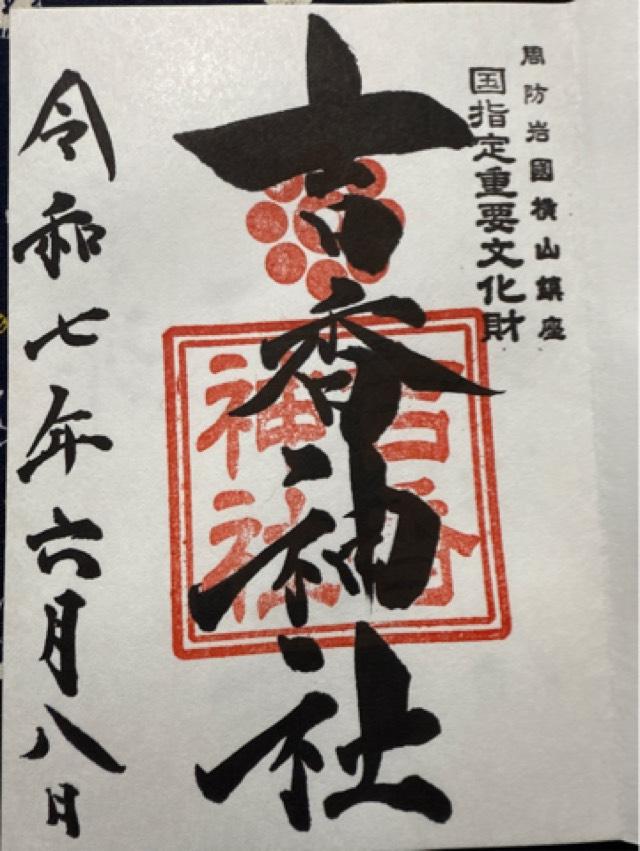 周防岩國横山鎮座
国指定重要文化財
吉香神社
吉香
神社
令和七年六月八日